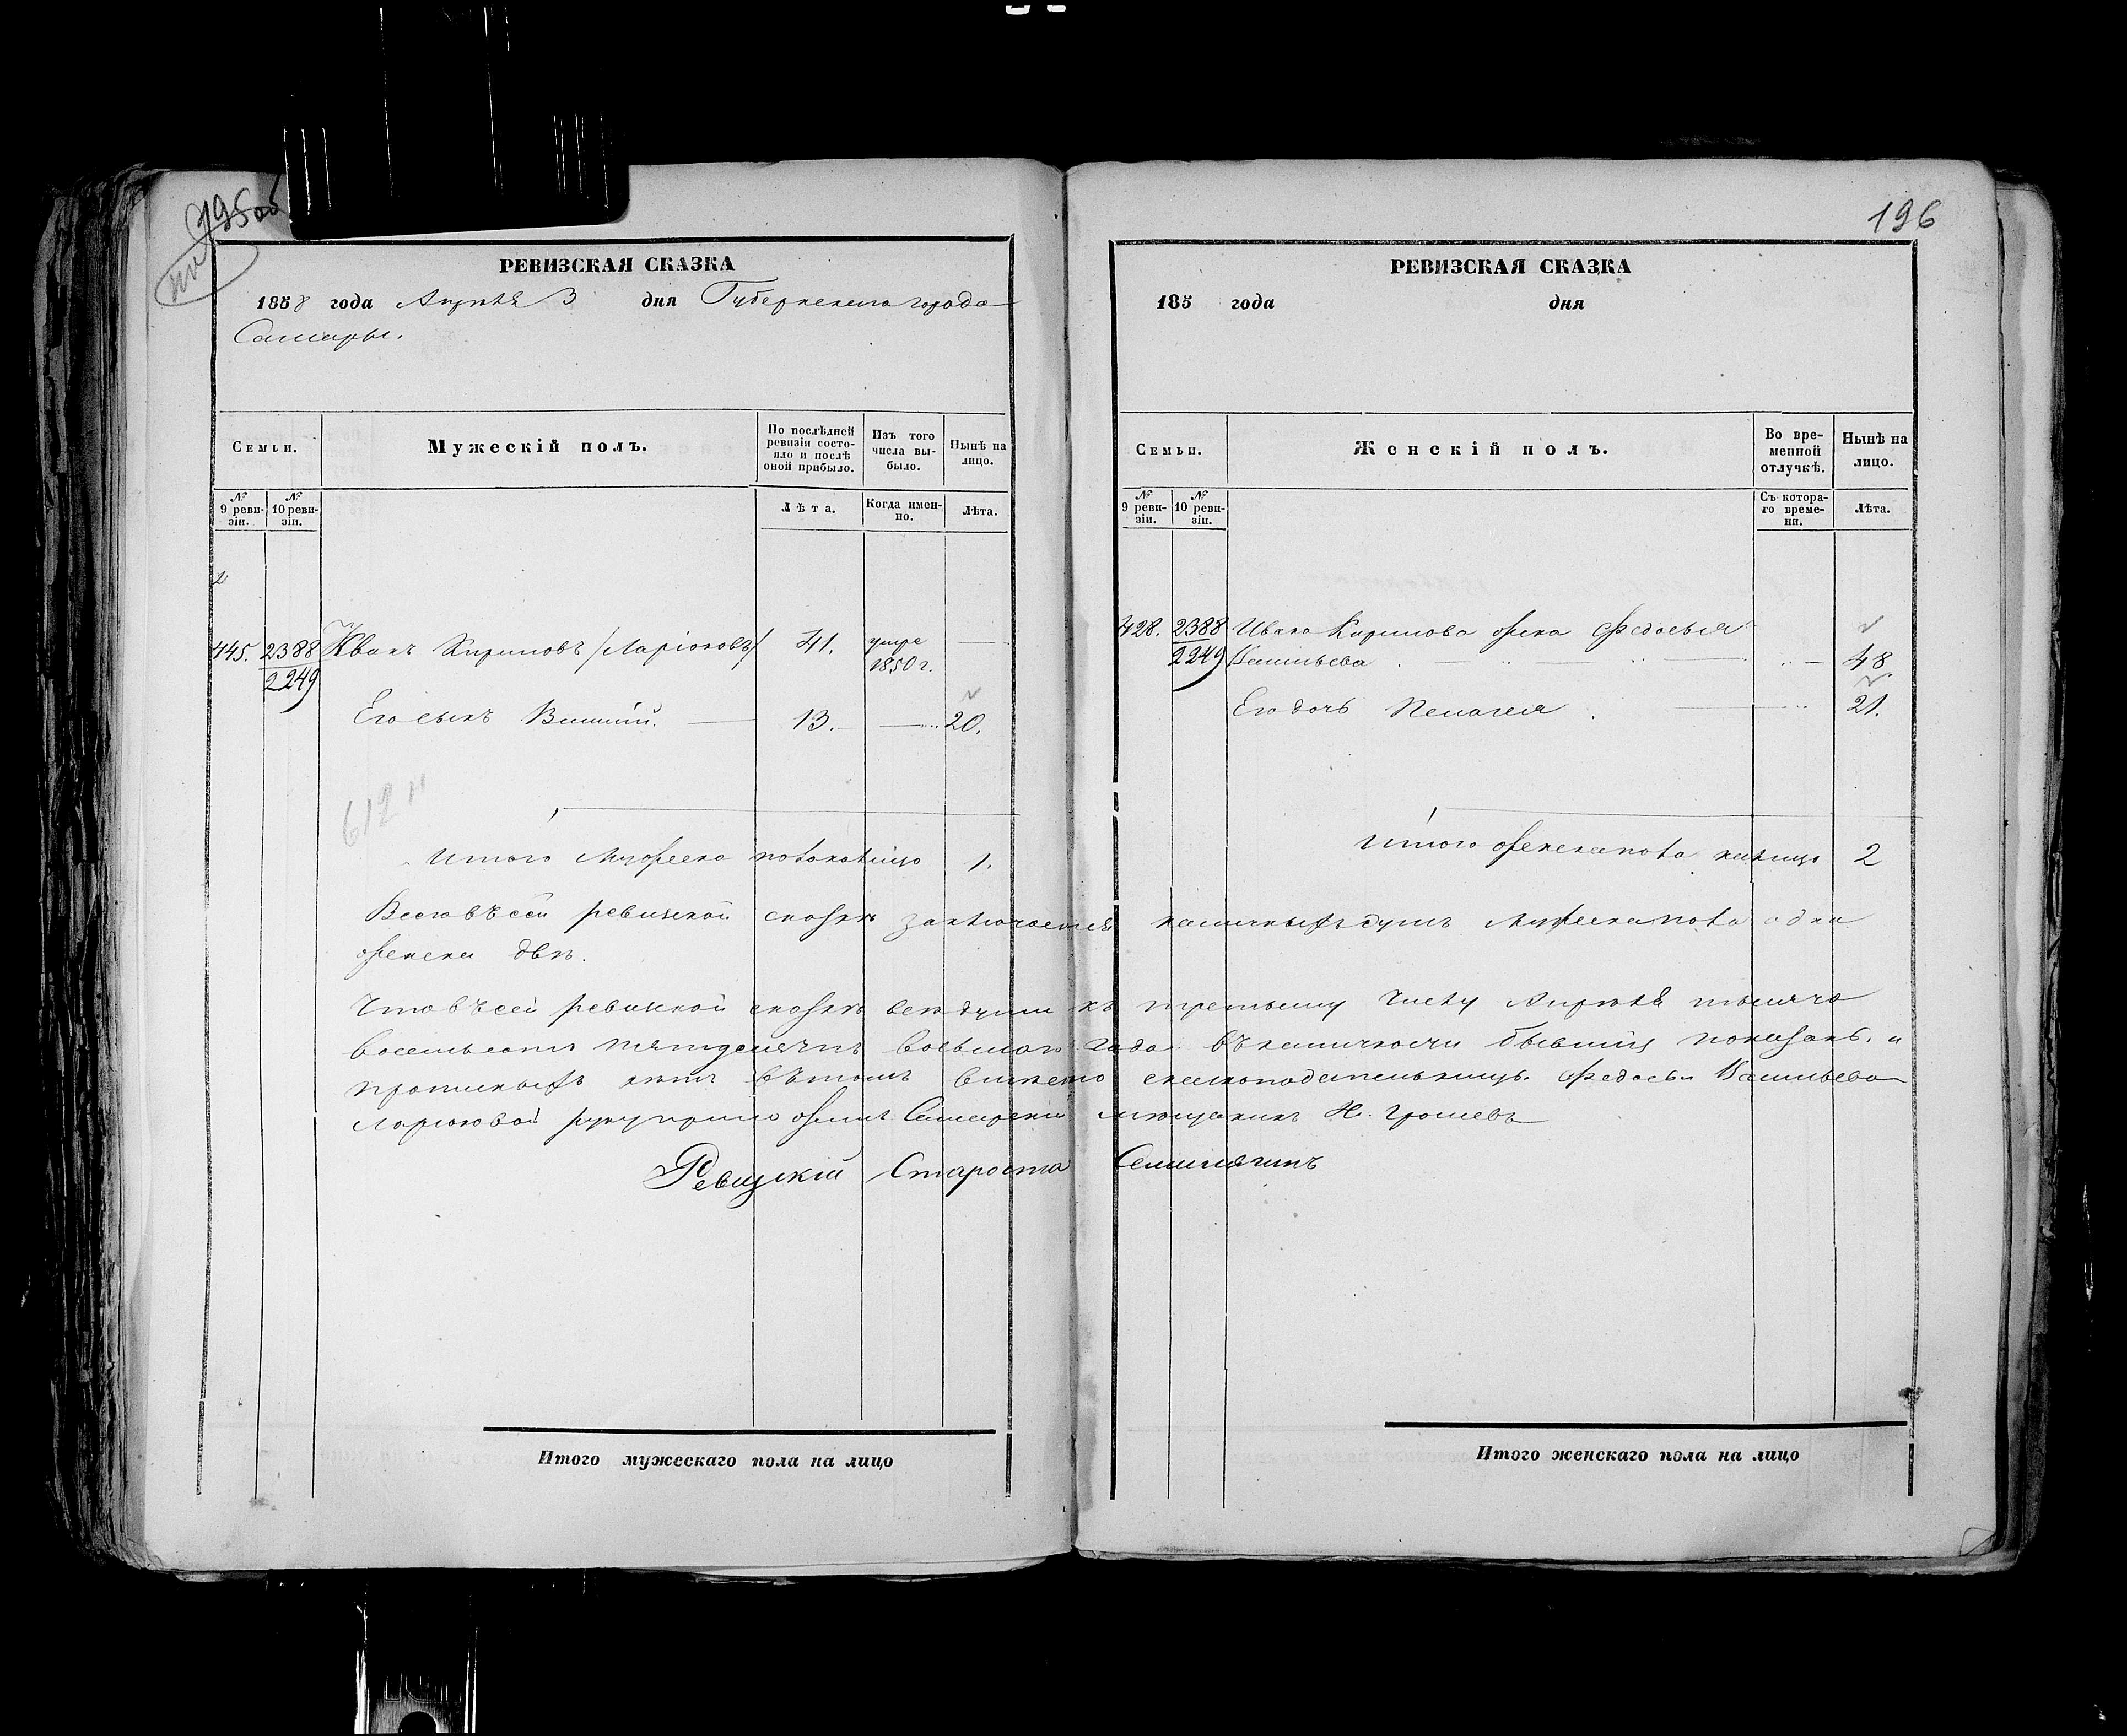 195об
196
РЕВИЗСКАЯ СКАЗКА
1858 года Апрѣля 3 дня Губернскаго города
Самары.
Семьи.
Мужескій полъ.
По послѣдней ревизіи состояло и послѣ оной прибыло.
Изъ того числа выбыло.
Нынѣ на лицо.
№ 9 ревизіи.
№ 10 ревизіи.
Лѣта.
Когда именно.
Лѣта.
445. 2388 Иванъ Кириловъ /Ларіоновъ/ 41. умре —
2249 1850 г.
Его сынъ Василій. — 13. — 20.
612
Итого мужеска пола налицо 1.
РЕВИЗСКАЯ СКАЗКА
185 года дня
Семьи.
Женскій полъ.
Во временной отлучкѣ.
Нынѣ на лицо.
№ 9 ревизіи.
№ 10 ревизіи.
Съ котораго времени.
Лѣта.
428. 2388 Ивана Кирилова жена Федосья
2249 Васильева 48.
Его дочь Пелагея 21.
Итого женска пола налицо 2
Всего въ сей ревизской сказкѣ заключается наличныхъ душъ мужеска пола одна
женска двѣ.
Что въ сей ревизской сказкѣ всѣ души къ третьему числу Апрѣля тысяча
восемьсотъ пятьдесятъ восьмаго года въ наличности бывшія показаны. и
прописныхъ нѣтъ вѣтомъ вмѣсто сказкоподательницы Федосьи Васильевой
Ларіоновой руку приложилъ Самарскій мѣщанинъ Н. Грошевъ
Ревизскій Староста
Итого мужескаго пола на лицо
Итого женскаго пола на лицо